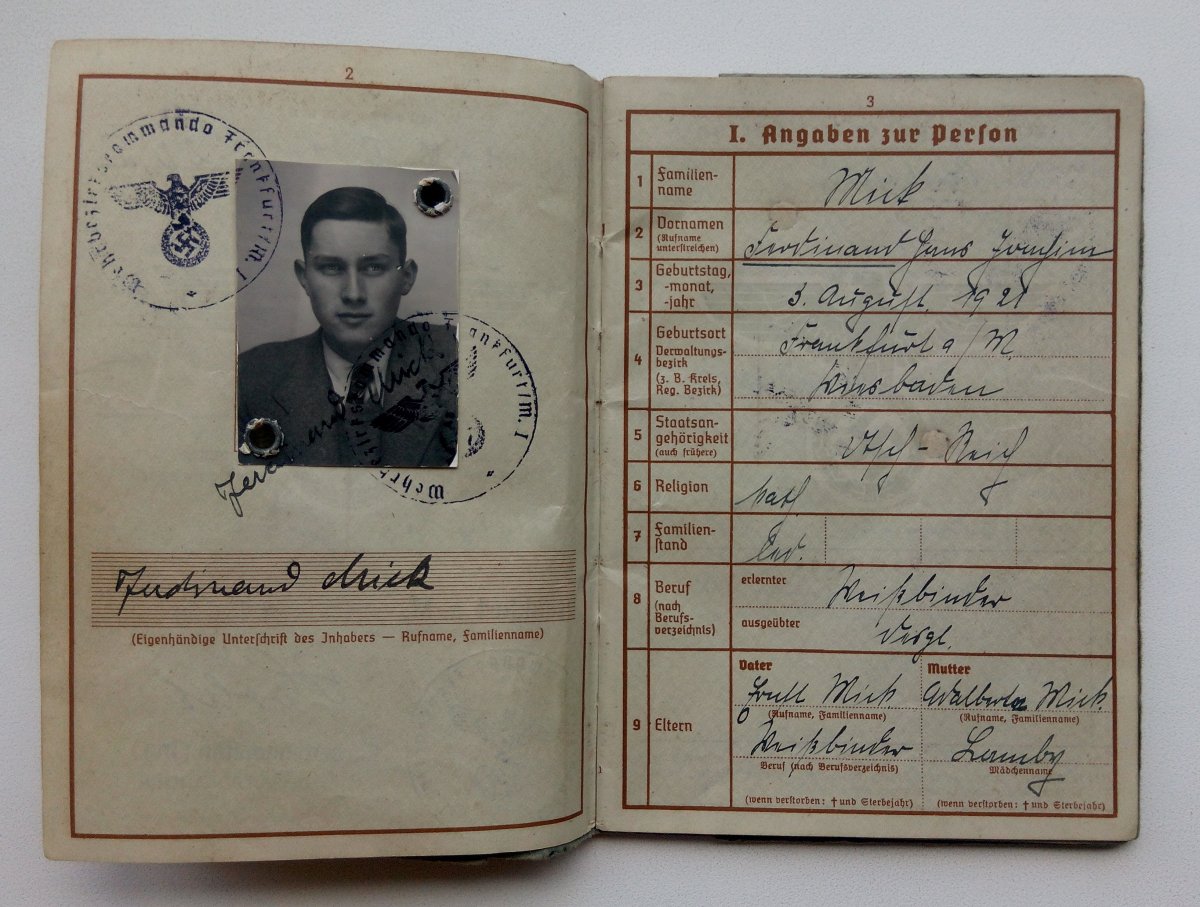 2
Wehrbezirkskommando Frankfurt/M. I
Wehrbezirkskommando Frankfurt/M. I
Ferdinand Mick
Ferdinand Mick
(Eigenhändige Unterschrift des Inhabers — Rufname, Familienname)
3
I. Angaben zur Person
1 Familien-
name
Mick
2 Vornamen
(Rufname
unterstreichen)
Ferdinand Hans Joachim
3 Geburtstag,
-monat,
-jahr
3. August 1921
4 Geburtsort
Verwaltungs-
bezirk
(z. B. Kreis,
Reg. Bezirk)
Frankfurt a/M.
Wiesbaden
5 Staatsan-
gehörigkeit
(auch frühere)
Dtsch-Reich
6 Religion
kath.
7 Familien-
stand
led.
8 Beruf
(nach
Berufs-
verzeichnis)
erlernter
Weißbinder
ausgeübter
desgl.
9 Eltern
Vater
Mick
(Rufname, Familienname)
Weißbinder
Beruf (nach Berufsverzeichnis)
(wenn verstorben: † und Sterbejahr)
Mutter
Adalberta Mick
(Rufname, Familienname)
Lamby
Mädchenname
(wenn verstorben: † und Sterbejahr)